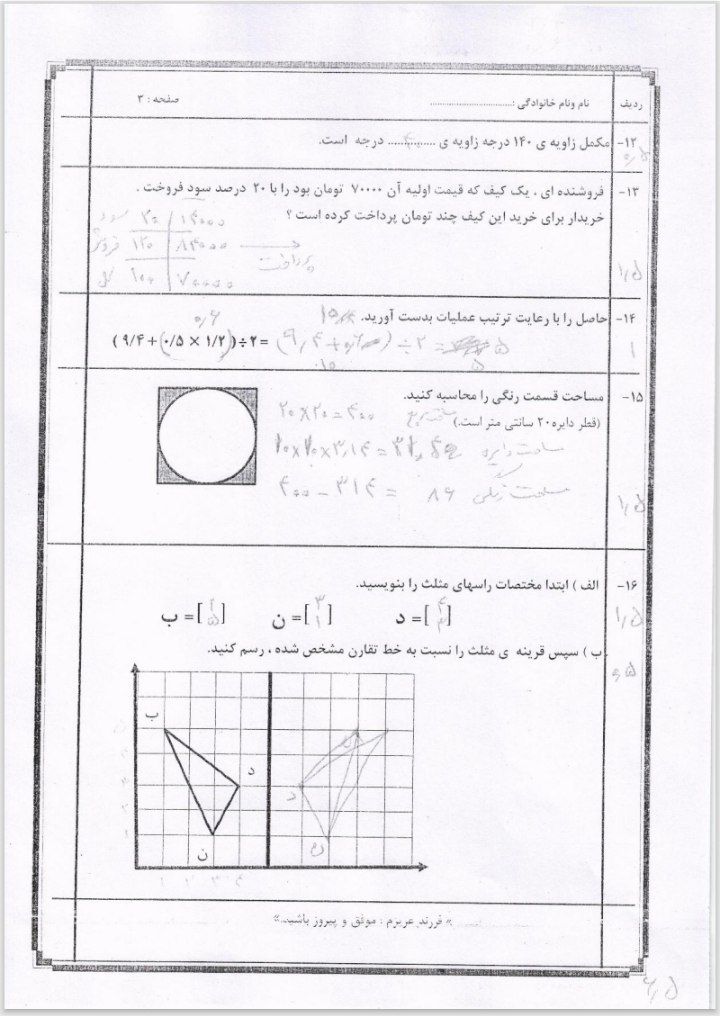 ردیف نام ونام خانوادگی :.............................. صفحه : ۳
۱۲- مکمل زاویه ی ۱۴۰ درجه زاویه ی .............. درجه است.
۰٫۵
۱۳- فروشنده ای ، یک کیف که قیمت اولیه آن ۷۰۰۰۰ تومان بود را با ۲۰ درصد سود فروخت .
خریدار برای خرید این کیف چند تومان پرداخت کرده است ؟
سود ۲۰ ۱۴۰۰۰
فروش ۱۲۰ ۸۴۰۰۰ پرداخت
کل ۱۰۰ ۷۰۰۰۰
۱٫۵
۱۴- حاصل را با رعایت ترتیب عملیات بدست آورید.
۰٫۶
( ۹/۴ + (۰/۵ × ۱/۲)) ÷ ۲ = (۹٫۴ + ۰٫۶) ÷ ۲ = ۵
۱۰ ۵
۱
۱۵- مساحت قسمت رنگی را محاسبه کنید.
(قطر دایره ۲۰ سانتی متر است.) ۲۰×۲۰=۴۰۰ مساحت مربع
۱۰×۱۰×۳٫۱۴= مساحت دایره
۴۰۰ - ۳۱۴ = ۸۶ مساحت رنگی
۱٫۵
۱۶- الف ) ابتدا مختصات راسهای مثلث را بنویسید.
د = [۴ ۳] ن = [۳ ۱] ب = [ ۵]
۱٫۵
ب ) سپس قرینه ی مثلث را نسبت به خط تقارن مشخص شده ، رسم کنید.
ب
د
ن
د
ن
۱ ۲ ۳ ۴
« فرزند عزیزم : موفق و پیروز باشید.»
۶٫۵